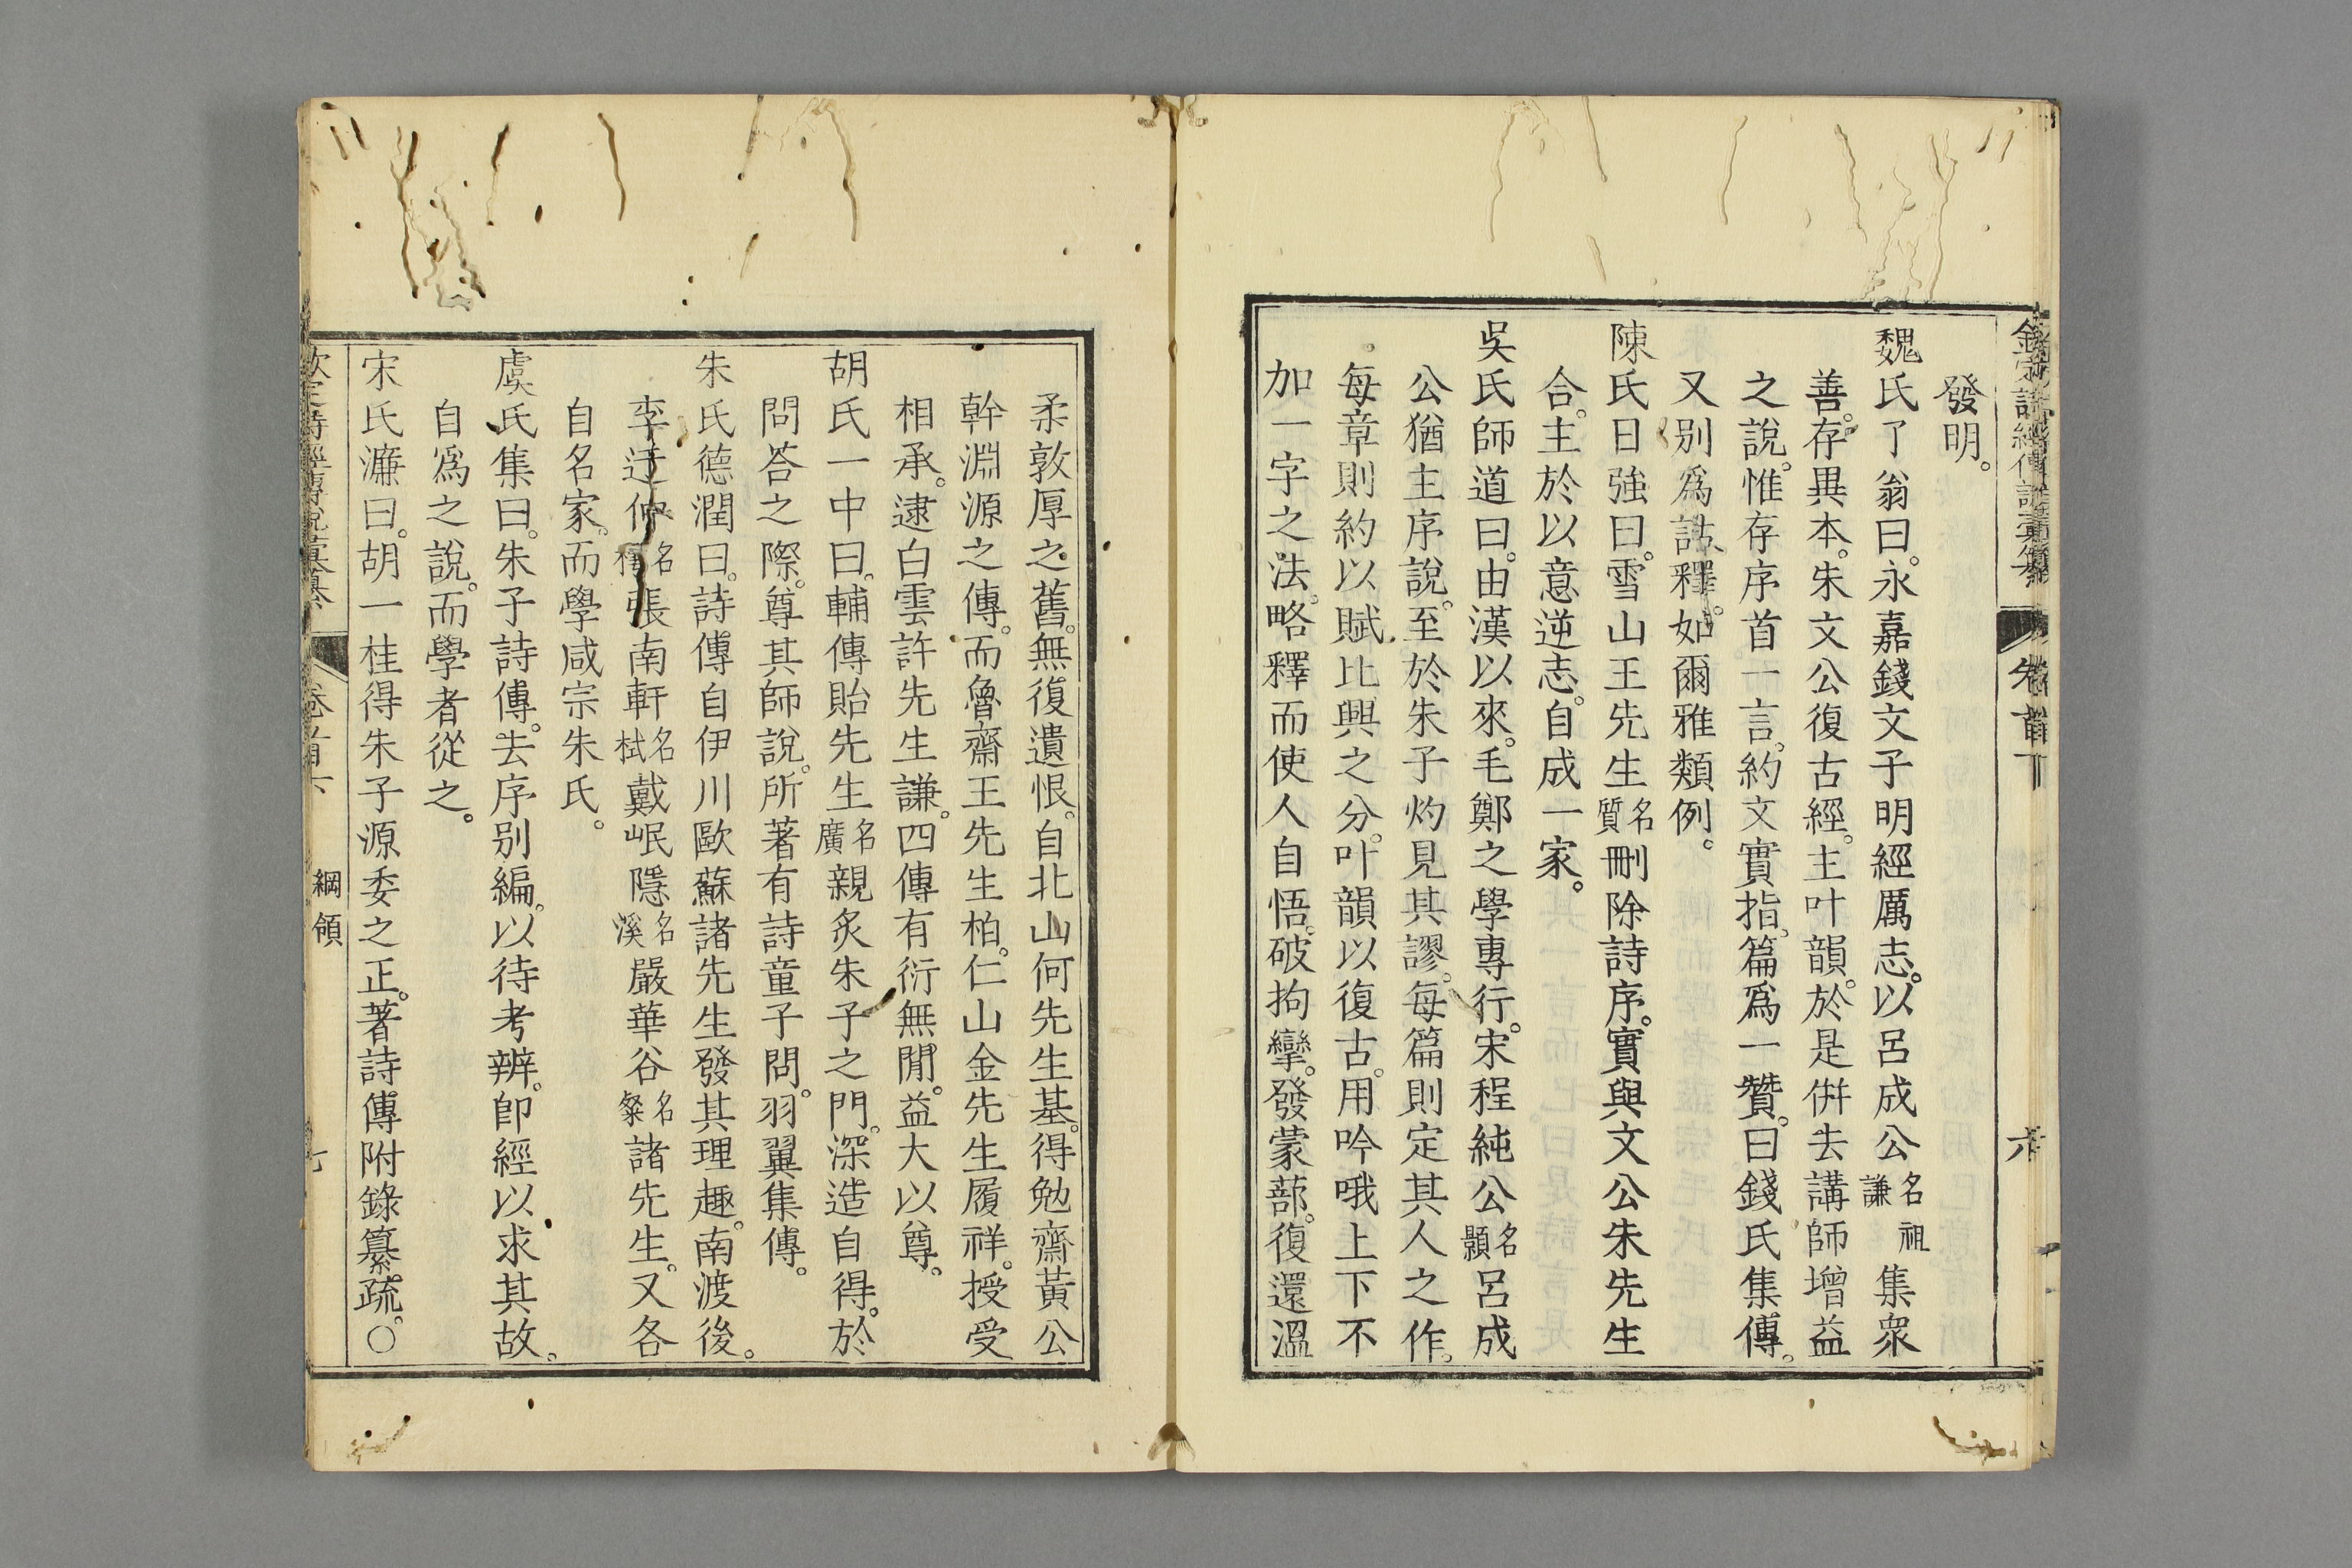 發明。
魏氏了翁曰。永嘉錢文子明經厲志。以呂成公名祖謙集衆
善。存異本。朱文公復古經。主叶韻。於是倂去講師增益
之說。惟存序首一言。約文實指。篇爲一贊。曰錢氏集傳。
又别爲詁釋。如爾雅類例。
陳氏日強曰。雪山王先生名質刪除詩序。實與文公朱先生
合。主於以意逆志。自成一家。
吳氏師道曰。由漢以來。毛鄭之學專行。宋程純公名顥呂成
公猶主序說。至於朱子灼見其謬。每篇則定其人之作。
每章則約以賦比興之分。叶韻以復古。用吟哦上下不
加一字之法。略釋而使人自悟。破拘攣。發蒙蔀。復還溫
柔敦厚之舊。無復遺恨。自北山何先生基。得勉齋黃公
幹淵源之傳。而魯齋王先生柏。仁山金先生履祥。授受
相承。逮白雲許先生謙。四傳有衍無閒。益大以尊。
胡氏一中曰。輔傳貽先生名廣親炙朱子之門。深造自得。於
問荅之際。尊其師說。所著有詩童子問。羽翼集傳。
朱氏德潤曰。詩傳自伊川歐蘇諸先生發其理趣。南渡後。
李迂仲名張南軒名栻戴岷隱名溪嚴華谷名粲諸先生。又各
自名家。而學咸宗朱氏。
虞氏集曰。朱子詩傳。去序别編。以待考辨。卽經以求其故。
自爲之說。而學者從之。
宋氏濂曰。胡一桂得朱子源委之正。著詩傳附錄纂疏。〇
綱領